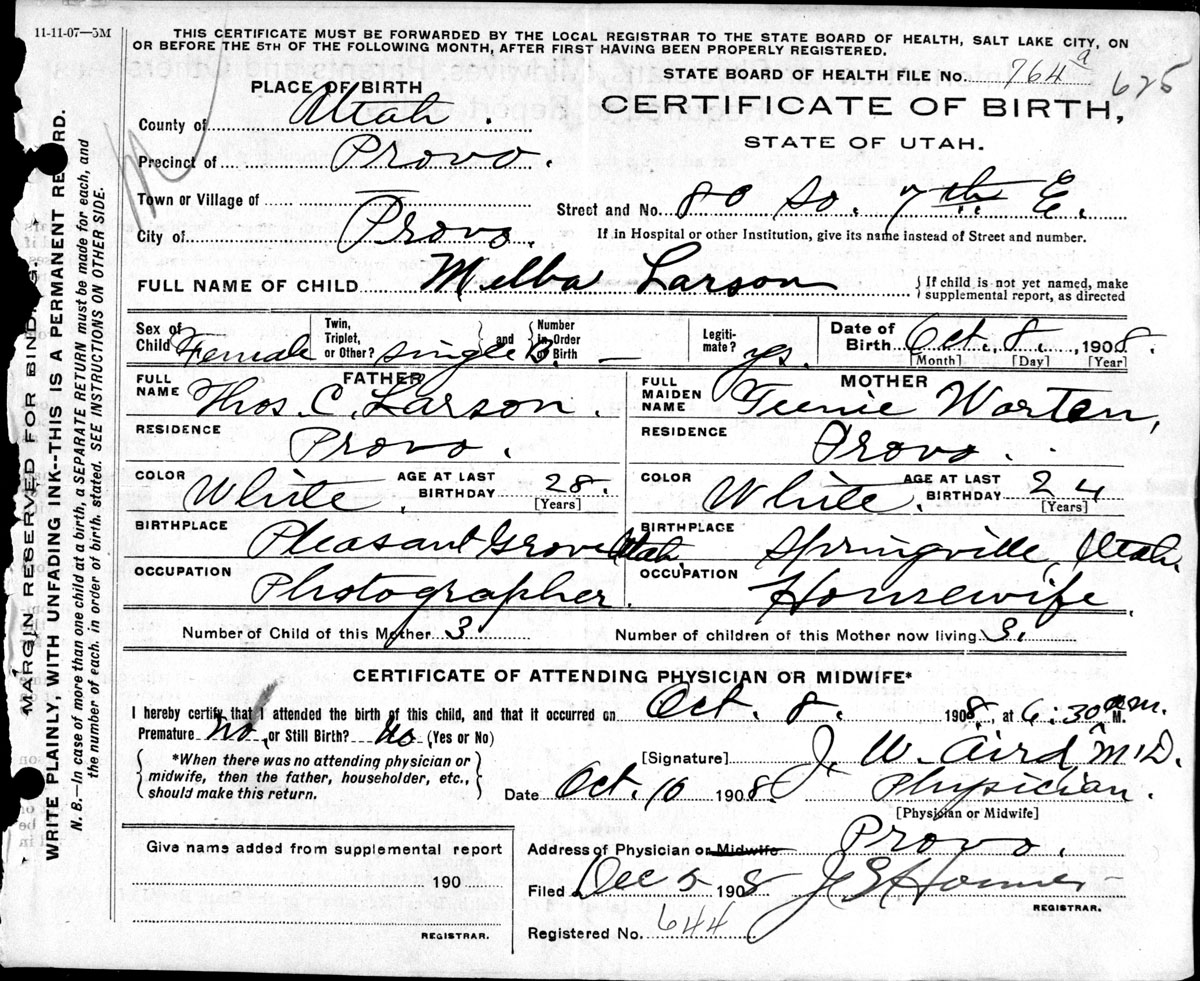 11-11-07—5M
THIS CERTIFICATE MUST BE FORWARDED BY THE LOCAL REGISTRAR TO THE STATE BOARD OF HEALTH, SALT LAKE CITY, ON
OR BEFORE THE 5TH OF THE FOLLOWING MONTH, AFTER FIRST HAVING BEEN PROPERLY REGISTERED.
STATE BOARD OF HEALTH FILE No. 764 a 625
PLACE OF BIRTH
CERTIFICATE OF BIRTH,
STATE OF UTAH.
County of Utah.
Precinct of Provo.
Town or Village of —
Street and No. 80 So. 7th E.
City of Provo.
If in Hospital or other Institution, give its name instead of Street and number.
FULL NAME OF CHILD Melba Larson
If child is not yet named, make
supplemental report, as directed
Sex of Child Female
Twin, Triplet, or Other? single
and Number in Order of Birth —
Legitimate? yes.
Date of Birth Oct. 8., 1908.
[Month] [Day] [Year]
FATHER
FULL NAME Thos. C. Larson.
MOTHER
FULL MAIDEN NAME Teenie Worten,
RESIDENCE Provo.
RESIDENCE Provo.
COLOR White. AGE AT LAST BIRTHDAY 28. [Years]
COLOR White. AGE AT LAST BIRTHDAY 24 [Years]
BIRTHPLACE Pleasant Grove Utah.
BIRTHPLACE Springville, Utah.
OCCUPATION Photographer.
OCCUPATION Housewife.
Number of Child of this Mother 3.
Number of children of this Mother now living 3.
CERTIFICATE OF ATTENDING PHYSICIAN OR MIDWIFE*
I hereby certify that I attended the birth of this child, and that it occurred on Oct. 8. 1908, at 6:30 a.m. M.
Premature No, or Still Birth? No (Yes or No)
*When there was no attending physician or
midwife, then the father, householder, etc.,
should make this return.
[Signature] J. W. Aird, M.D.
Date Oct. 10 1908. Physician.
[Physician or Midwife]
Address of Physician or Midwife Provo.
Filed Dec 5 1908 J E Homer
REGISTRAR.
Registered No. 644
Give name added from supplemental report
190
REGISTRAR.
MARGIN RESERVED FOR BINDING.
WRITE PLAINLY, WITH UNFADING INK--THIS IS A PERMANENT RECORD.
N. B.—In case of more than one child at a birth, a SEPARATE RETURN must be made for each, and
the number of each, in order of birth, stated. SEE INSTRUCTIONS ON OTHER SIDE.